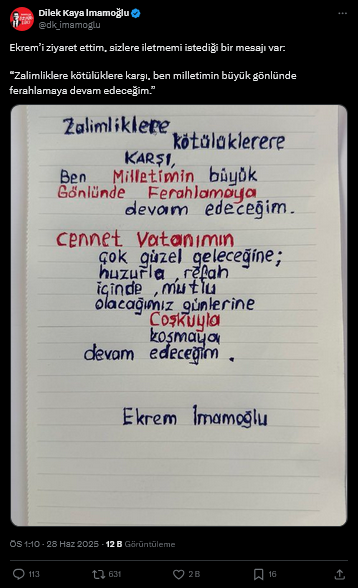 Dilek Kaya İmamoğlu
@dk_imamoglu
Ekrem'i ziyaret ettim, sizlere iletmemi istediği bir mesajı var:
“Zalimliklere kötülüklere karşı, ben milletimin büyük gönlünde
ferahlamaya devam edeceğim.”
Zalimliklere
kötülüklerere
KARŞI,
Ben Milletimin büyük
Gönlünde Ferahlamaya
devam edeceğim.
Cennet Vatanımın
çok güzel geleceğine;
huzurla, refah
içinde, mutlu
olacağımız günlerine
Coşkuyla
koşmaya
devam edeceğim.
Ekrem İmamoğlu
ÖS 1:10 · 28 Haz 2025 · 12 B Görüntüleme
113 631 2 B 16